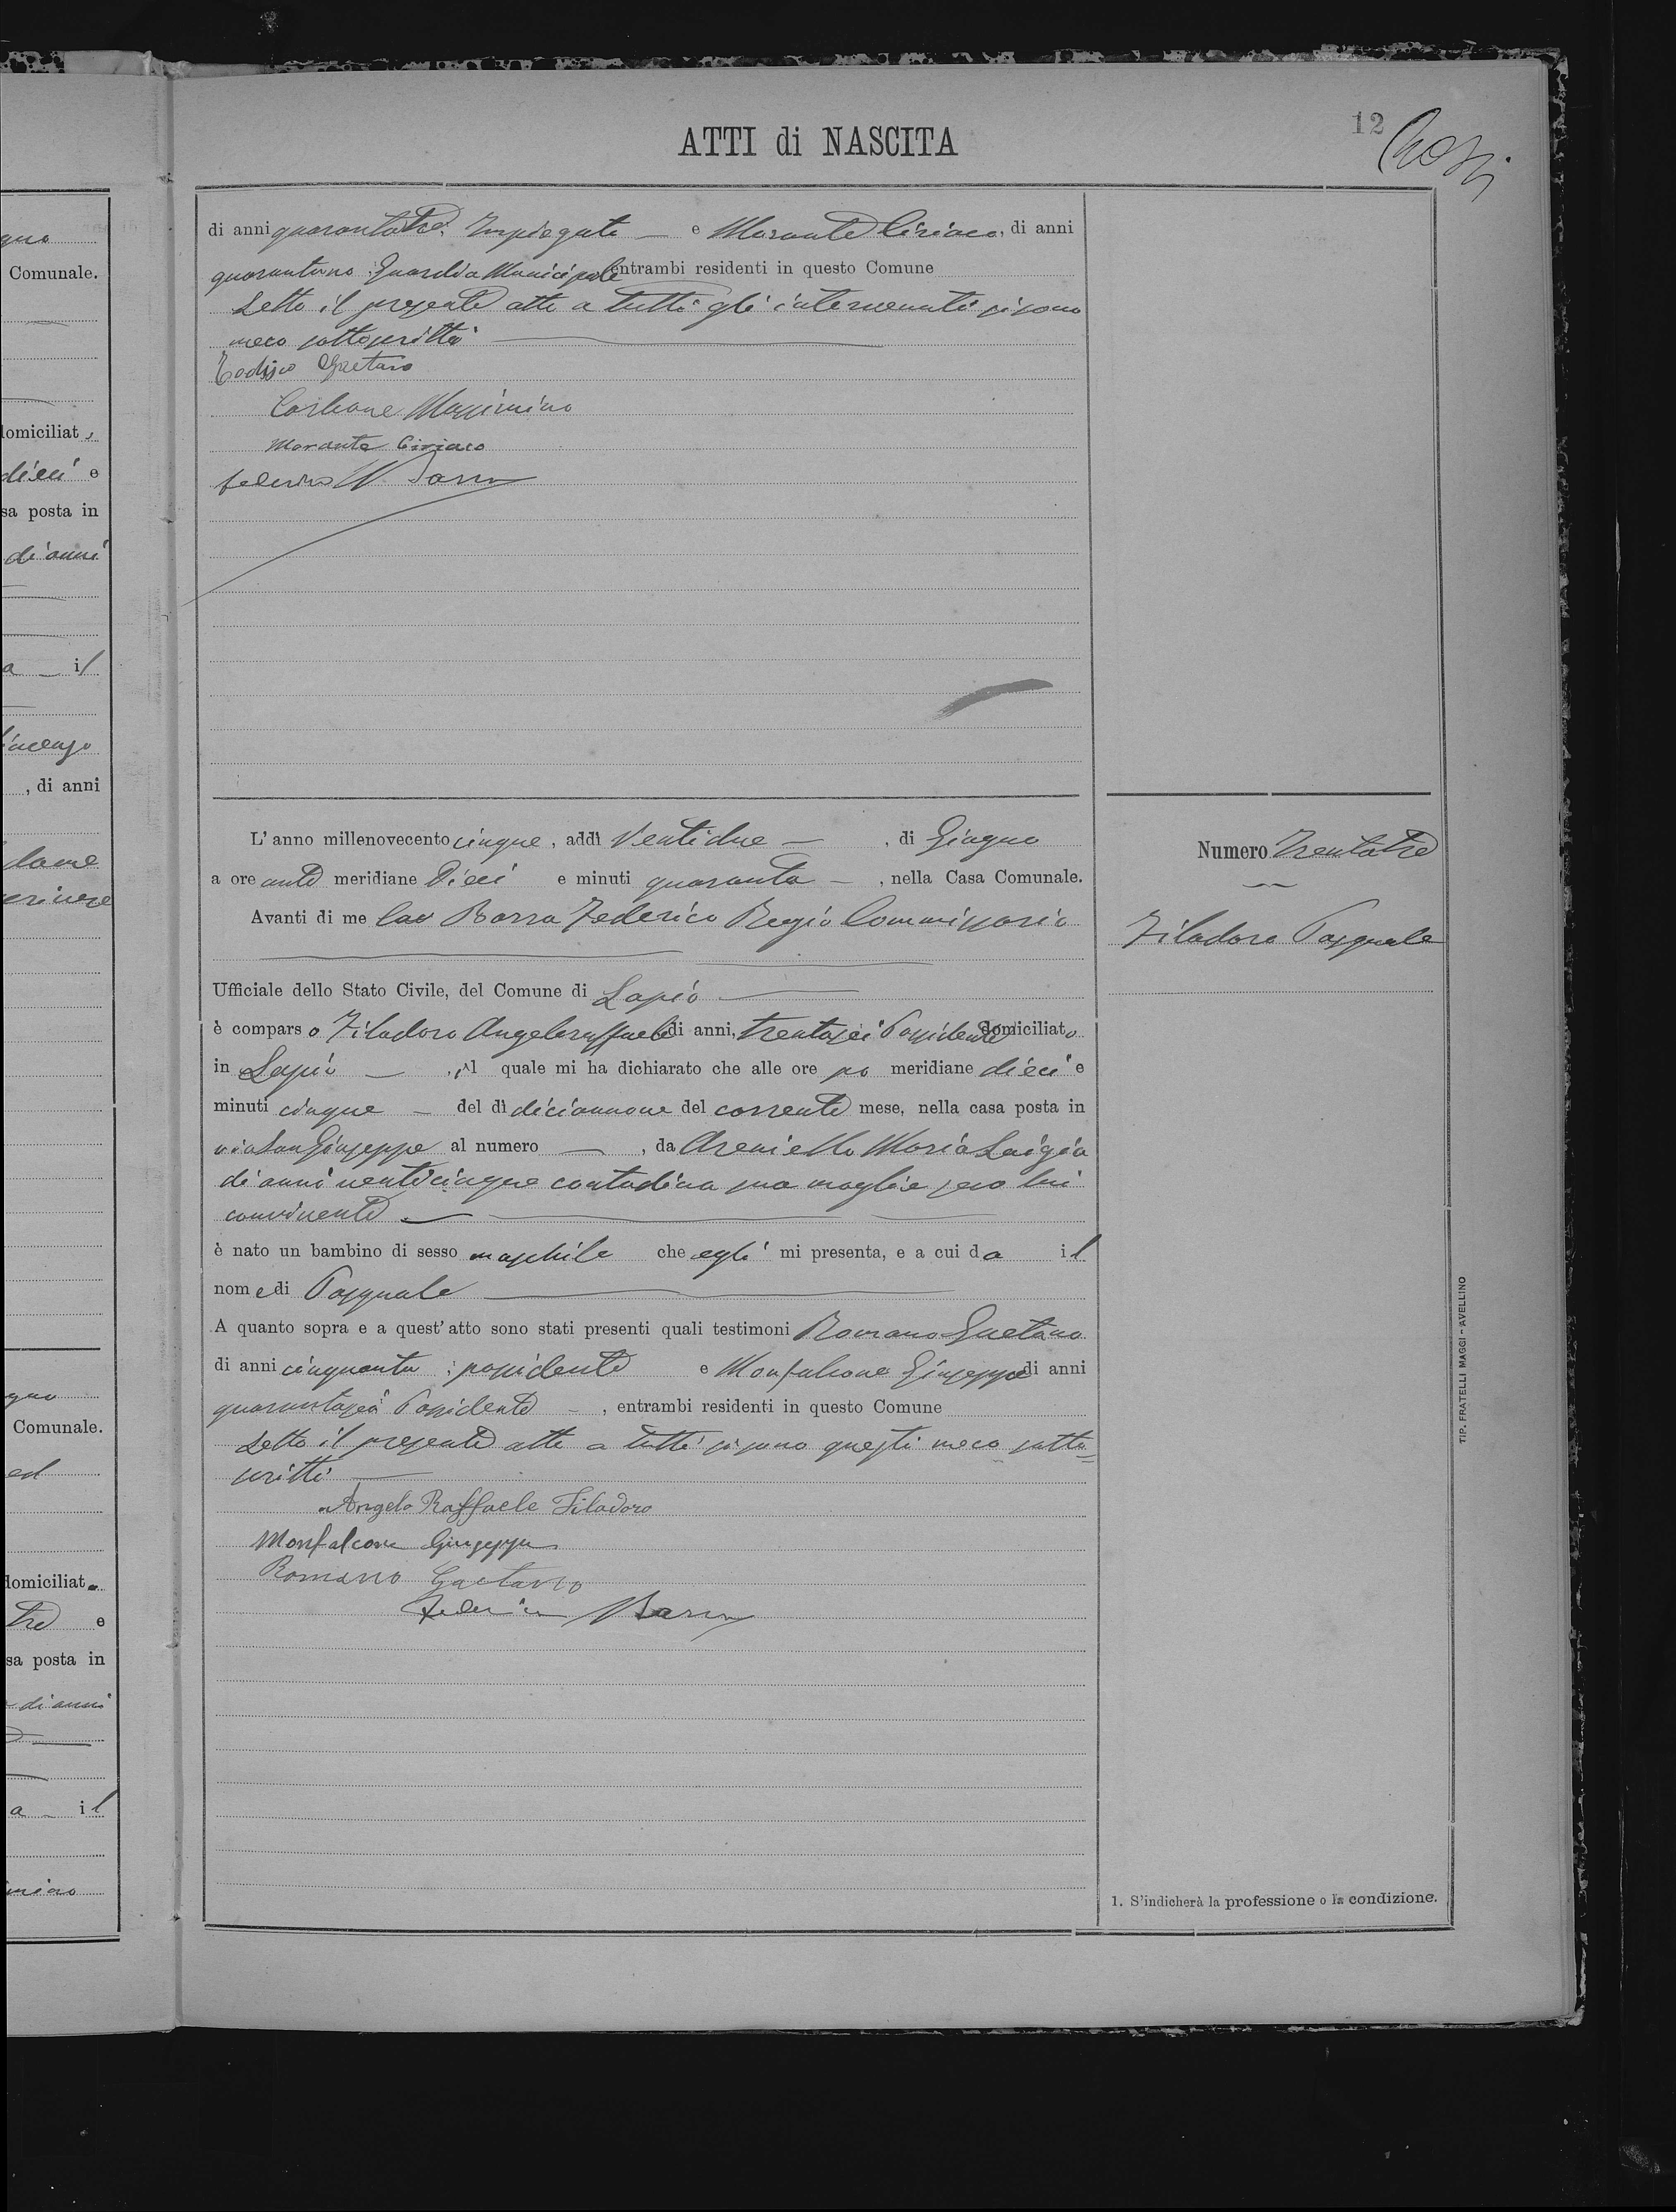 12
ATTI di NASCITA
di anni quarantatre, Impiegato e Morante Ciriaco, di anni
quarantuno, Guardia Municipale entrambi residenti in questo Comune
Letto il presente atto a tutti gli intervenuti si sono
meco sottoscritti
Gaetano
Carbone Massimino
Morante Ciriaco
Federico Barra
L'anno millenovecento cinque, addì Ventidue, di Giugno
a ore ante meridiane Dieci e minuti quaranta, nella Casa Comunale.
Avanti di me Cav Barra Federico Regio Commissario
Ufficiale dello Stato Civile, del Comune di Lapio
è comparso Filadoro Angeloraffaele di anni, trentasei Possidente domiciliato
in Lapio, il quale mi ha dichiarato che alle ore po meridiane dieci e
minuti cinque del dì diciannove del corrente mese, nella casa posta in
via San Giuseppe al numero —, da Areniello Maria Luigia
di anni venticinque contadina sua moglie seco lui
convivente
è nato un bambino di sesso maschile che egli mi presenta, e a cui da il
nome di Pasquale
A quanto sopra e a quest'atto sono stati presenti quali testimoni Romano Gaetano
di anni cinquanta, possidente e Monfalcone Giuseppe di anni
quarantasei Possidente, entrambi residenti in questo Comune
Letto il presente atto a tutti si sono questi meco sotto=
scritti
Angelo Raffaele Filadoro
Monfalcone Giuseppe
Romano Gaetano
Federico Barra
Numero Trentatre
Filadoro Pasquale
1. S'indicherà la professione o la condizione.
TIP. FRATELLI MAGGI - AVELLINO
gno
Comunale.
domiciliat
dieci e
sa posta in
di anni
a il
, di anni
gno
Comunale.
ed
domiciliata
tre e
sa posta in
di anni
a il